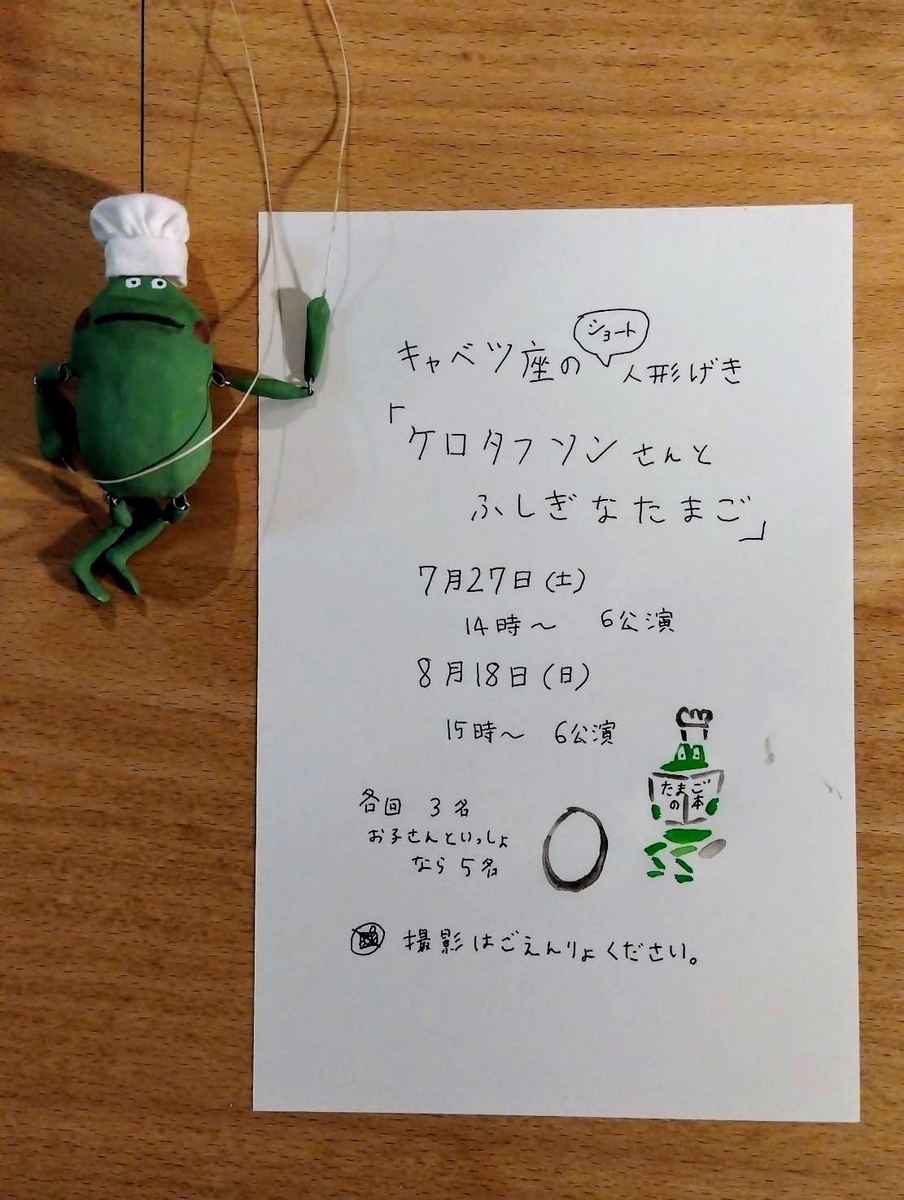 ショート
キャベツ座の 人形げき
「ケロタフソンさんと
ふしぎなたまご」
7月27日(土)
14時〜 6公演
8月18日(日)
15時〜 6公演
たまご
の本
各回 3名
お子さんといっしょ
なら 5名
撮影はごえんりょください。